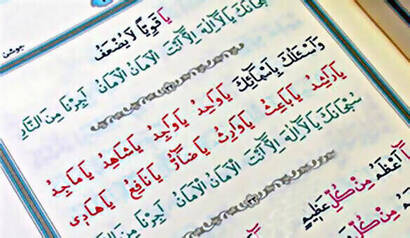 جوشن
يَا قَوِيًّا لَا يَضْعُفُ
سُبْحَانَكَ يَا لَا اِلٰهَ اِلَّا اَنْتَ الْاَمَانُ الْاَمَانُ اَجِرْنَا مِنَ النَّارِ
وَاَسْئَلُكَ بِاَسْمَائِكَ يَا وَاحِدُ يَا وَاجِدُ يَا شَاهِدُ يَا مَاجِدُ
يَا رَاشِدُ يَا بَاعِثُ يَا وَارِثُ يَا ضَارُّ يَا نَافِعُ يَا هَادِي
سُبْحَانَكَ يَا لَا اِلٰهَ اِلَّا اَنْتَ الْاَمَانُ الْاَمَانُ
اَعْظَمُ مِنْ كُلِّ عَظِيمٍ
مِنْ كُلِّ